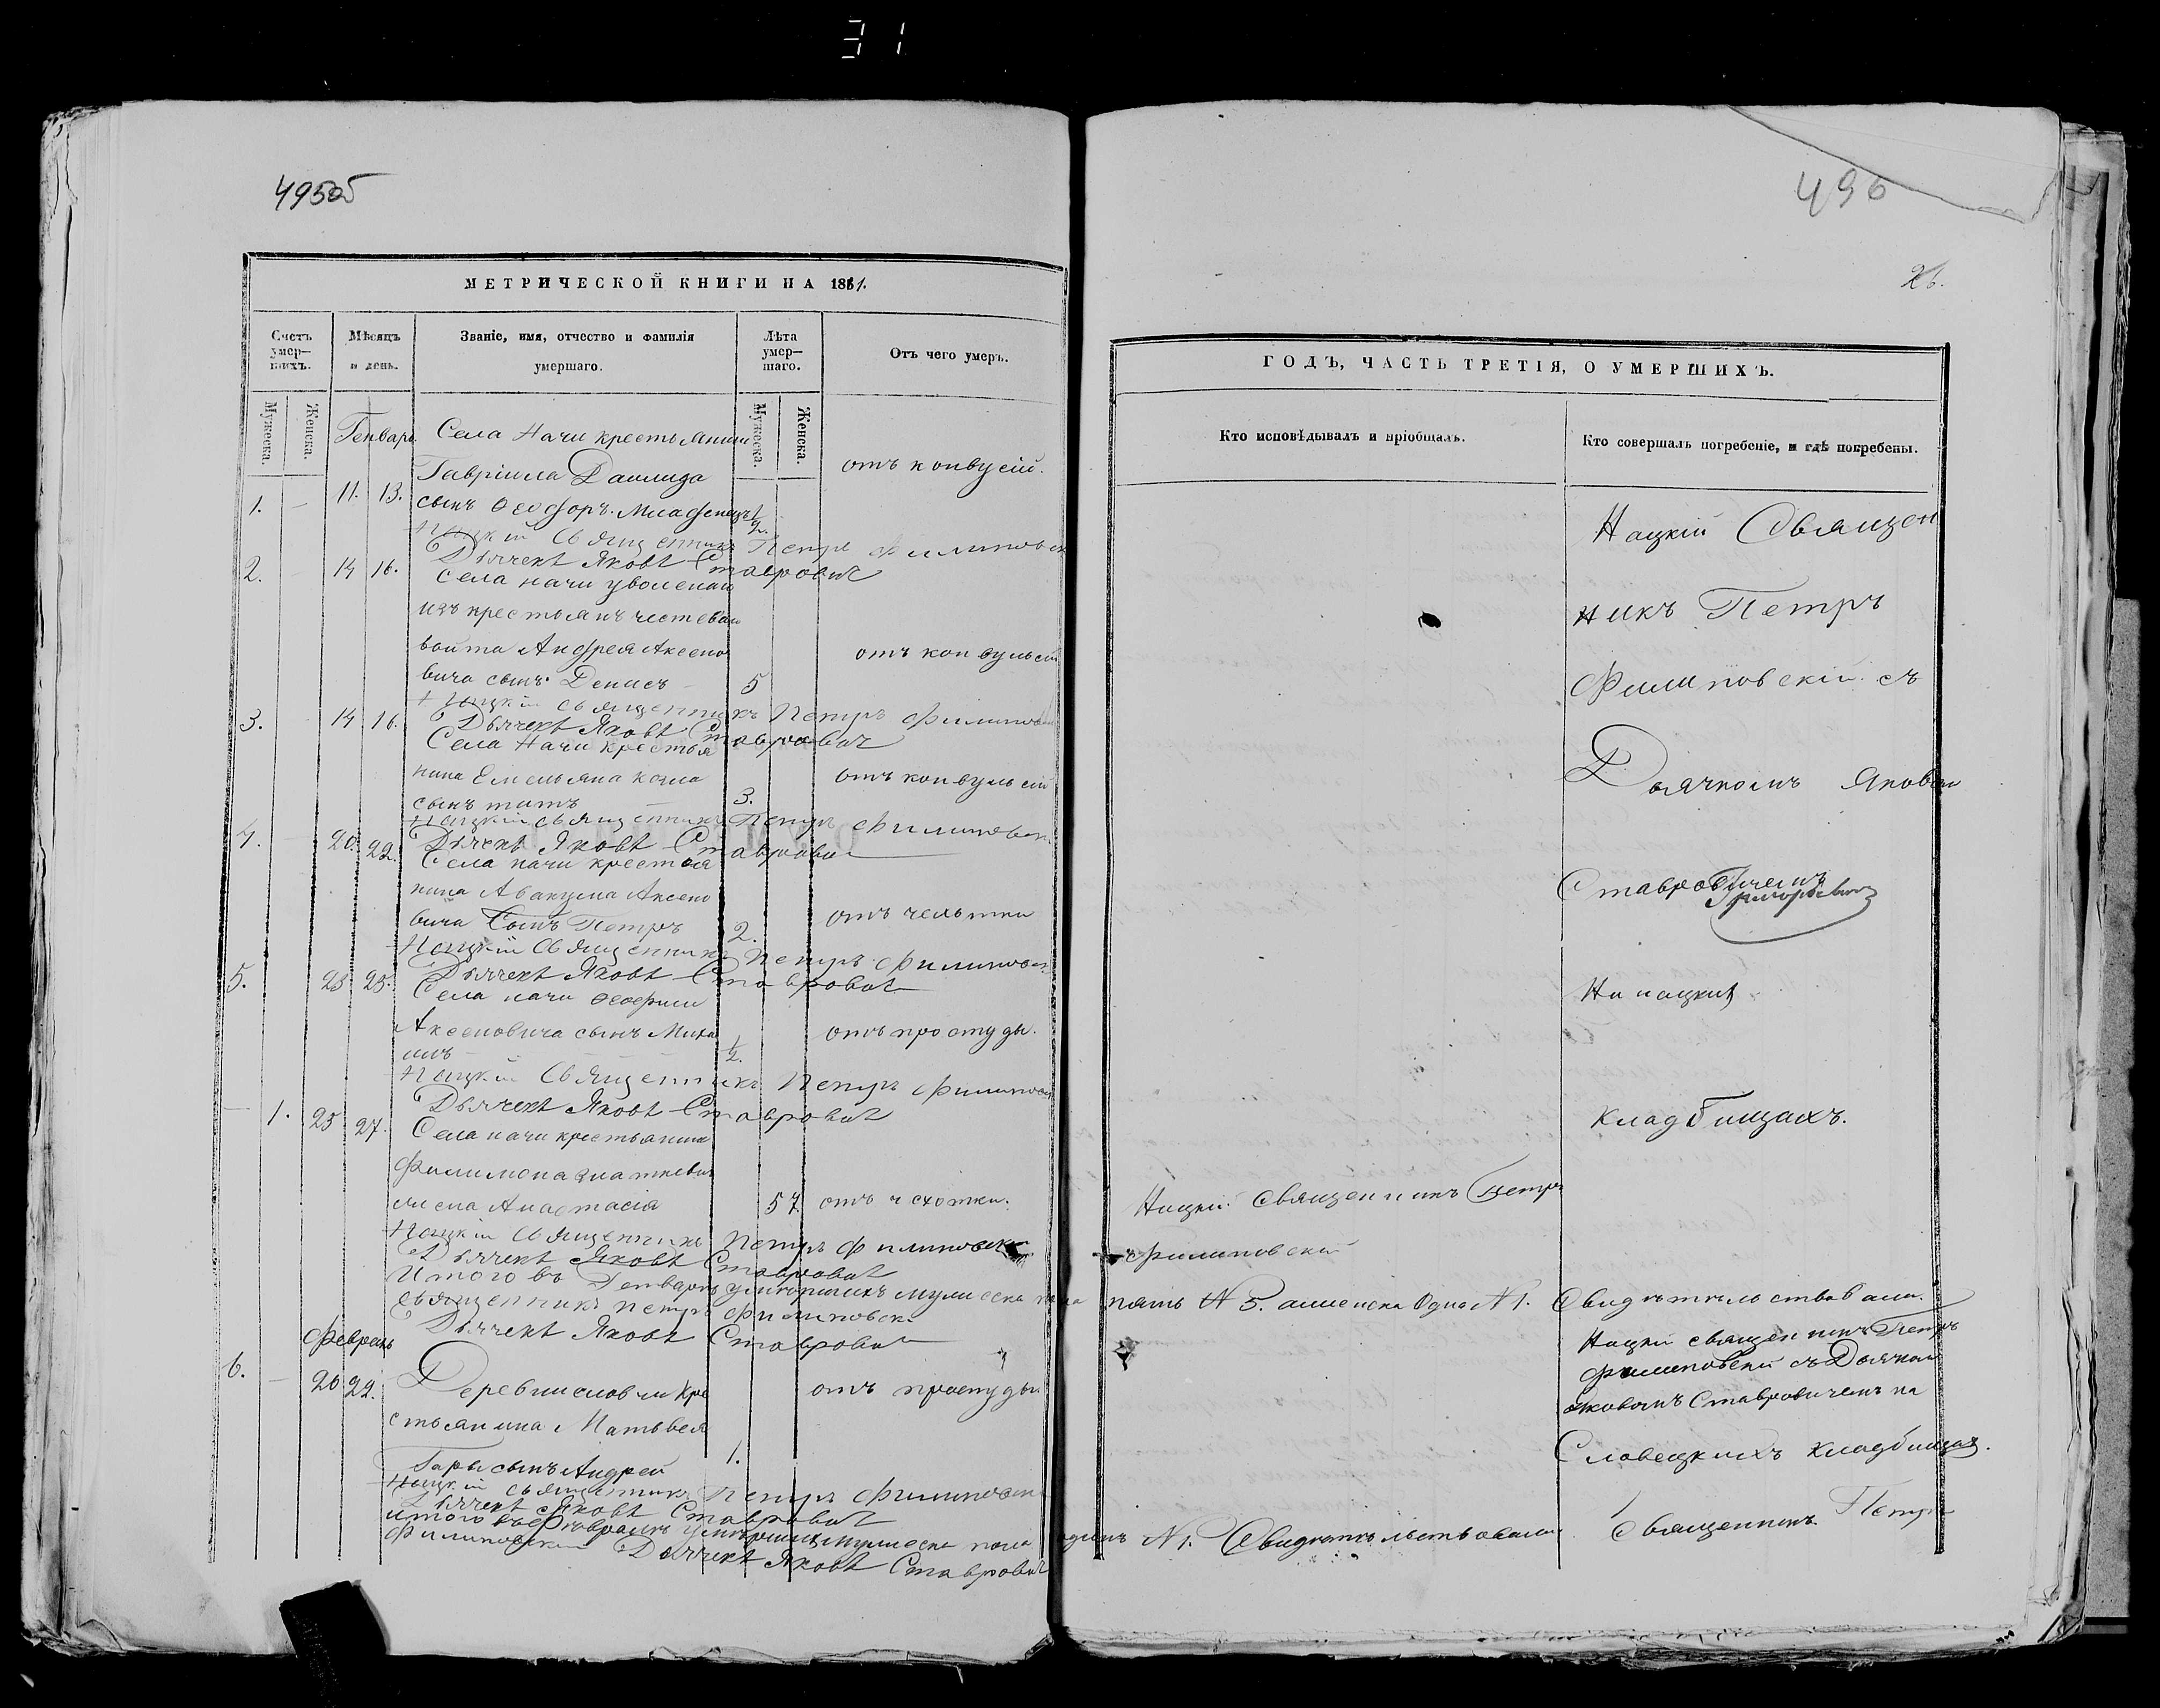 31
495об
МЕТРИЧЕСКОЙ КНИГИ НА 1861.
Счетъ умер-шихъ.
Мѣсяцъ и день.
Званіе, имя, отчество и фамилія умершаго.
Лѣта умер-шаго.
Отъ чего умеръ.
Мужеска.
Женска.
Мужеска.
Женска.
Генварь.
Села Начи крестьянина
Гавріила Данилида отъ конвусій.
1. — 11. 13. сынъ Ѳеодоръ. Младенецъ 1/2.
Нацкій Священникъ Петръ Филиповскі
Дьячекъ Яковъ Ставровичъ
2. — 14 16. Села начи уволенаго
изъ крестьянъ
войта Андрея Аксено отъ конвульсій
вича сынъ Денисъ — 5
Нацкій священникъ Петръ Филиповскі
Дьячекъ Яковъ Ставровичъ
3. 14 16. Села Начи крестья
нина Емельяна отъ конвульсій
сынъ титъ — 3.
Нацкій священникъ Петръ Филиповск
Дьячекъ Яковъ Ставрович
4. 20. 22. Села начи крестья
нина Авакума Аксено
вича Сынъ Петръ 2. отъ
Нацкій Священникъ Петръ Филиповск
Дьячекъ Яковъ Ставровичъ
5. 23 25. Села начи
Аксеновича сынъ Миха отъ простуды.
илъ — 1/2.
Нацкій Священникъ Петръ Филиповск
Дьячекъ Яковъ Ставровичъ
— 1. 25 27. Села начи крестьянина
Филимона
жена Анастасія 57 отъ чехотки.
Нацкій Священникъ Петръ Филиповскі
Дьячекъ Яковъ Ставровичъ
Итого въ Генварѣ умершихъ мужеска пола
священникъ Петръ Филиповскі
Дьячекъ Яковъ Ставрович
Февраль
6. — 20 22. Деревни словчи кре отъ простуды
стьянина Матьвея
Гары сынъ Андрей 1.
Нацкій священникъ Петръ Филиповск
Дьячекъ Яковъ Ставровичъ
итого въ Февралѣ умершихъ мужеска пола
Филиповскій Дьячекъ Яковъ Ставровичъ
496
26.
ГОДЪ, ЧАСТЬ ТРЕТІЯ, О УМЕРШИХЪ.
Кто исповѣдывалъ и пріобщалъ.
Кто совершалъ погребеніе, и гдѣ погребены.
Нацкій Священ
никъ Петръ
Филиповскій съ
Дьячкомъ Яковом
Ставровичемъ
На нацких
кладбищахъ.
Нацкій Священникъ Петръ
Филиповскій
пять N 5. аженска Одна N 1. Свидѣтельствовали.
Нацкій священникъ Петръ
Филиповскій съ Дьячком
яковымъ Ставровичемъ на
Словецкихъ кладбищах.
одинъ N 1. Свидѣтельствовали Священникъ Петръ